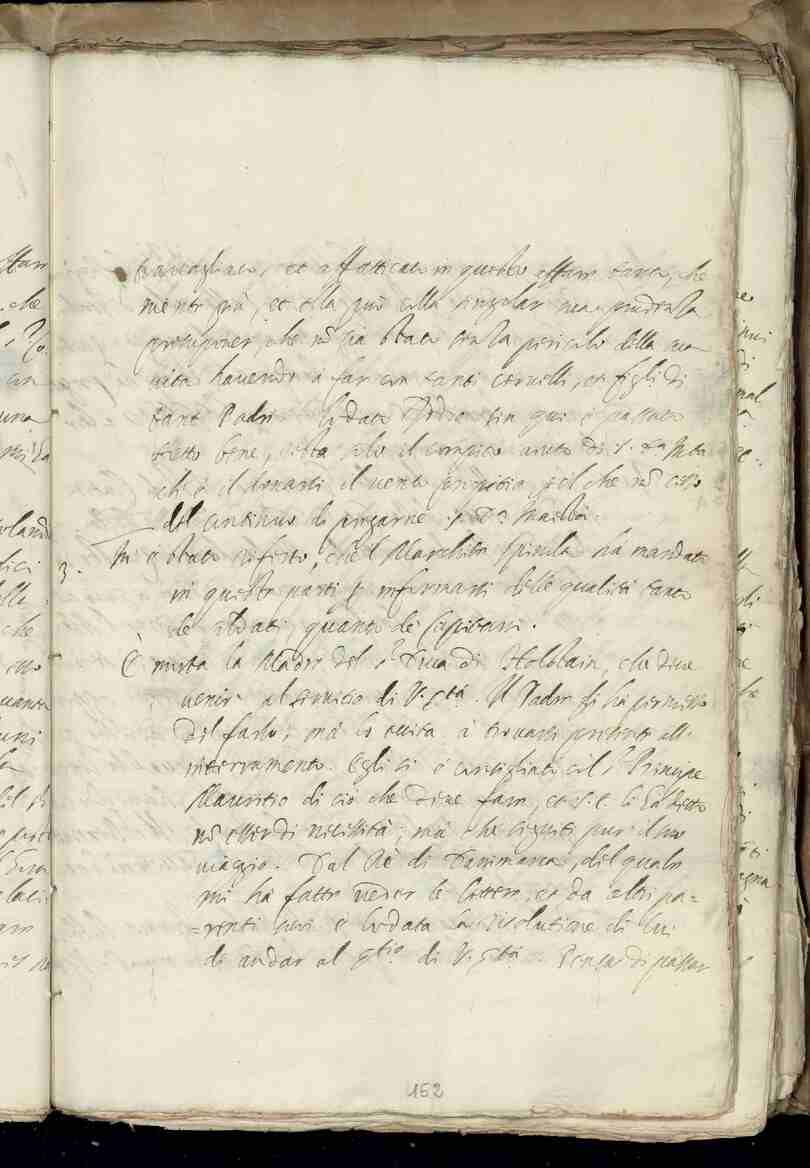 travagliato, et affatticato in questo affare tanto, che
niente più, et ella può colla singolar sua prudenza
presuponer, che nõ sia stato senza pericolo della mia
vita havendo à far con tanti cervelli, et figli di
tant Padri. Lodato Iddio sin qui è passato
tutto bene, resta solo il compito aiuto di S. Stà
ch'è il donarli il vento propitio, pel che nõ cesso
del continuo di pregarne S. D. Maestà.
3. Mi è stato riferto, che'l Marchese Spinola hà mandato
in queste parti p informarsi delle qualità tanto
de soldati, quanto de' Capitani.
È morta la Madre del S.r Duca di Holstain, che deve
venir al servitio di V. Stà. Il Padre gli hà permesso
del farlo, mà lo invita à trovarsi presente all'
interramento. Egli si è consigliato col S.r Principe
Mauritio di ciò che deve fare, et S. E. li hà detto
nõ esser di necessità, mà che seguiti pur il suo
viaggio. Dal Rè di Danimarca, del quale
mi hà fatto veder le lettere, et da altri pa=
=renti suoi è lodata la risolutione di lui
di andar al stio di V. Stà. Pensa di passar
152